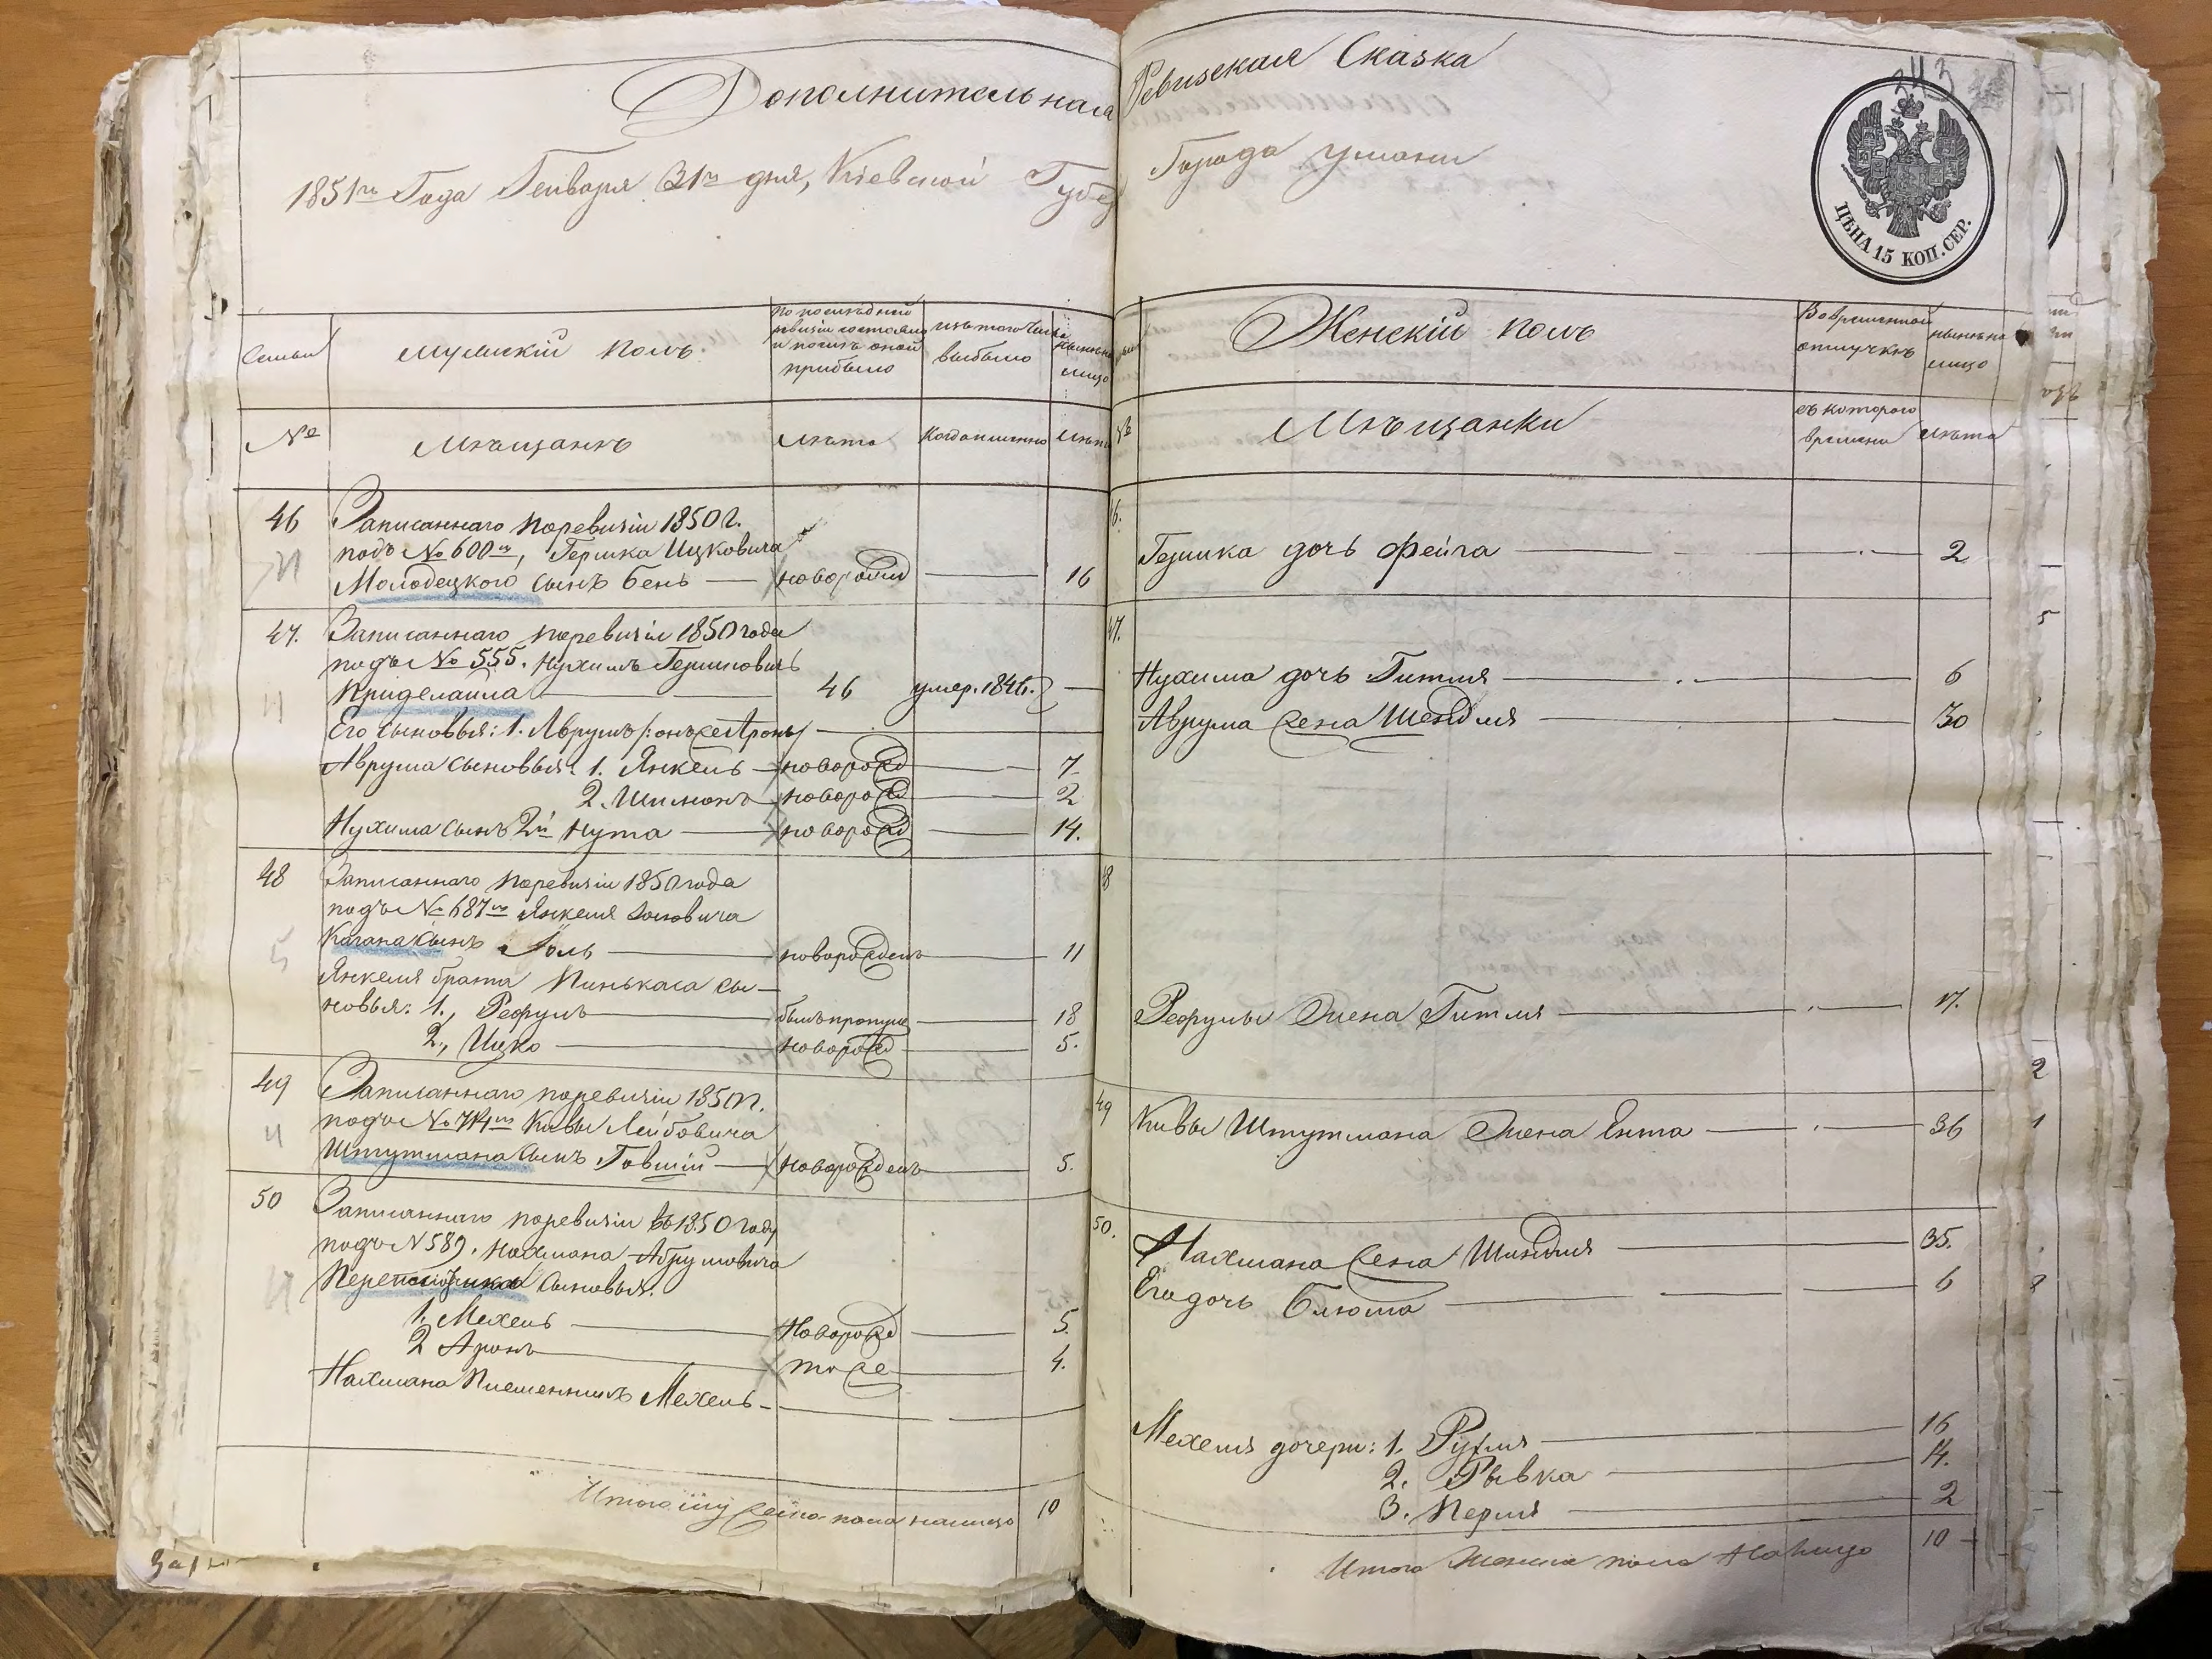 Дополнительная Ревизская Сказка
1851го Года Генваря 31го дня, Кіевской Губер Города Умани
243
ЦѢНА 15 КОП. СЕР.
Семьи
Мужескій полъ.
По послѣдней ревизіи состояло и послѣ оной прибыло
Изъ того числа выбыло
Нынѣ на лицо
№
Мѣщанъ
Лѣта
Когда именно
Лѣта
46
Записаннаго по ревизіи 1850 г.
подъ № 600мъ, Гершка Ицковича
Молодецкого сынъ Бень — новорожд — 16
47.
Записаннаго по ревизіи 1850 года
подъ № 555. Нухимъ Гершковичъ
— 46 умер. 1846. —
Его сыновья: 1. Аврумъ /: онъ же Аронъ/ —
Аврума сыновья: 1. Янкель — новорожд — 7
2. Шимонъ новорожд — 2
Нухима сынъ 2й Нута — новорожд — 14.
48
Записаннаго по ревизіи 1850 года
подъ № 687мъ Янкеля
Кагана сынъ — новорожденъ — 11
Янкеля брата Пинькаса сы-
новья: 1., Рефулъ — былъ пропущ — 18
2., Ицко — новорожд — 5.
49
Записаннаго по ревизіи 1850 г.
подъ № Кивы Лейбовича
Штутмана сынъ Говшій — новорожденъ — 5.
50
Записаннаго по ревизіи въ 1850 году
подъ N 589. Нахмана Аврумовича
сыновья:
1. Мехель — новорожд — 5.
2 Аронъ — тоже — 4.
Нахмана племенникъ Мехель —
Итого мужеска пола налицо 10
Женскій полъ
Во временной отлучкѣ
Нынѣ на лицо
№
Мѣщанки
Съ которого времени
Лѣта
Гершка дочь Фейга — 2
47.
Нухима дочь Гитля — 6
Аврума жена Шендля — 30
Рефулы жена Гитля — 17.
49
Кивы Штутмана жена Ента — 36
50.
Нахмана жена Шиндля — 35.
Его дочь Блюма — 6
Мехеля дочери: 1. Рухля — 16
2. Рывка — 14.
3. Перля — 2
Итого Женска пола На лицо 10